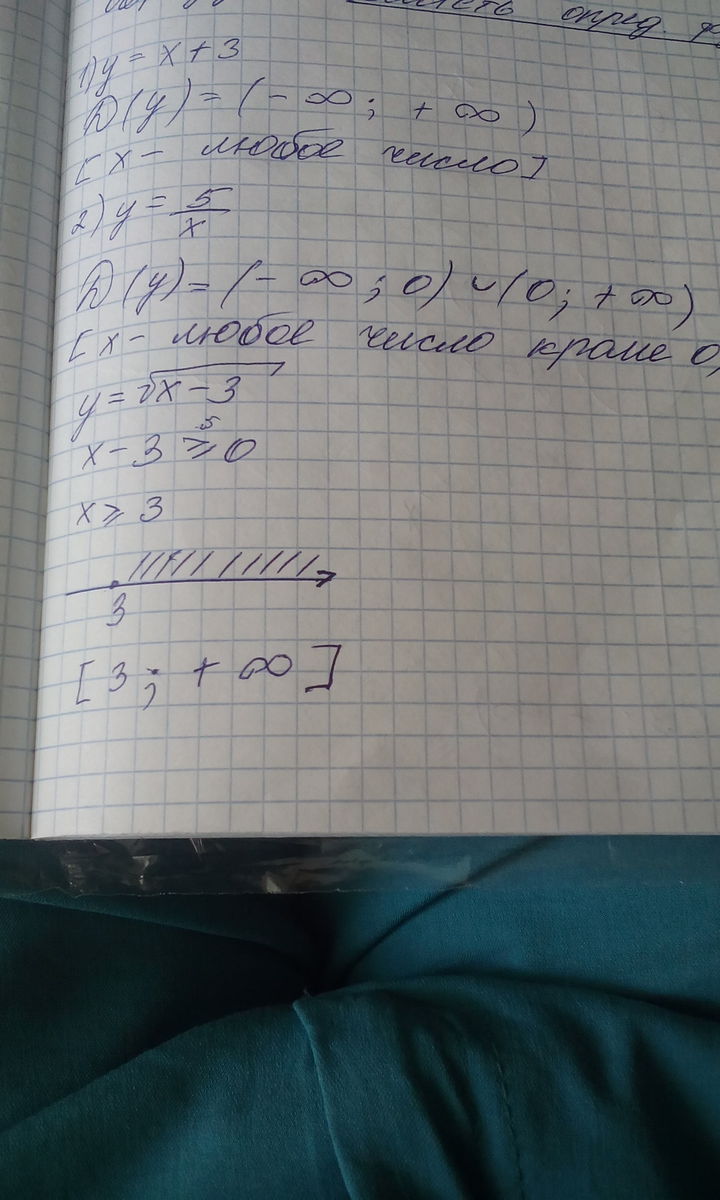 опред.
1) y = x + 3
D(y) = (- ∞; + ∞)
[x - любое число]
2) y = 5/x
D(y) = (- ∞; 0) ∪ (0; + ∞)
[x - любое число кроме 0
y = √x - 3
x - 3 ≥ 0
x ≥ 3
3
[3; + ∞]